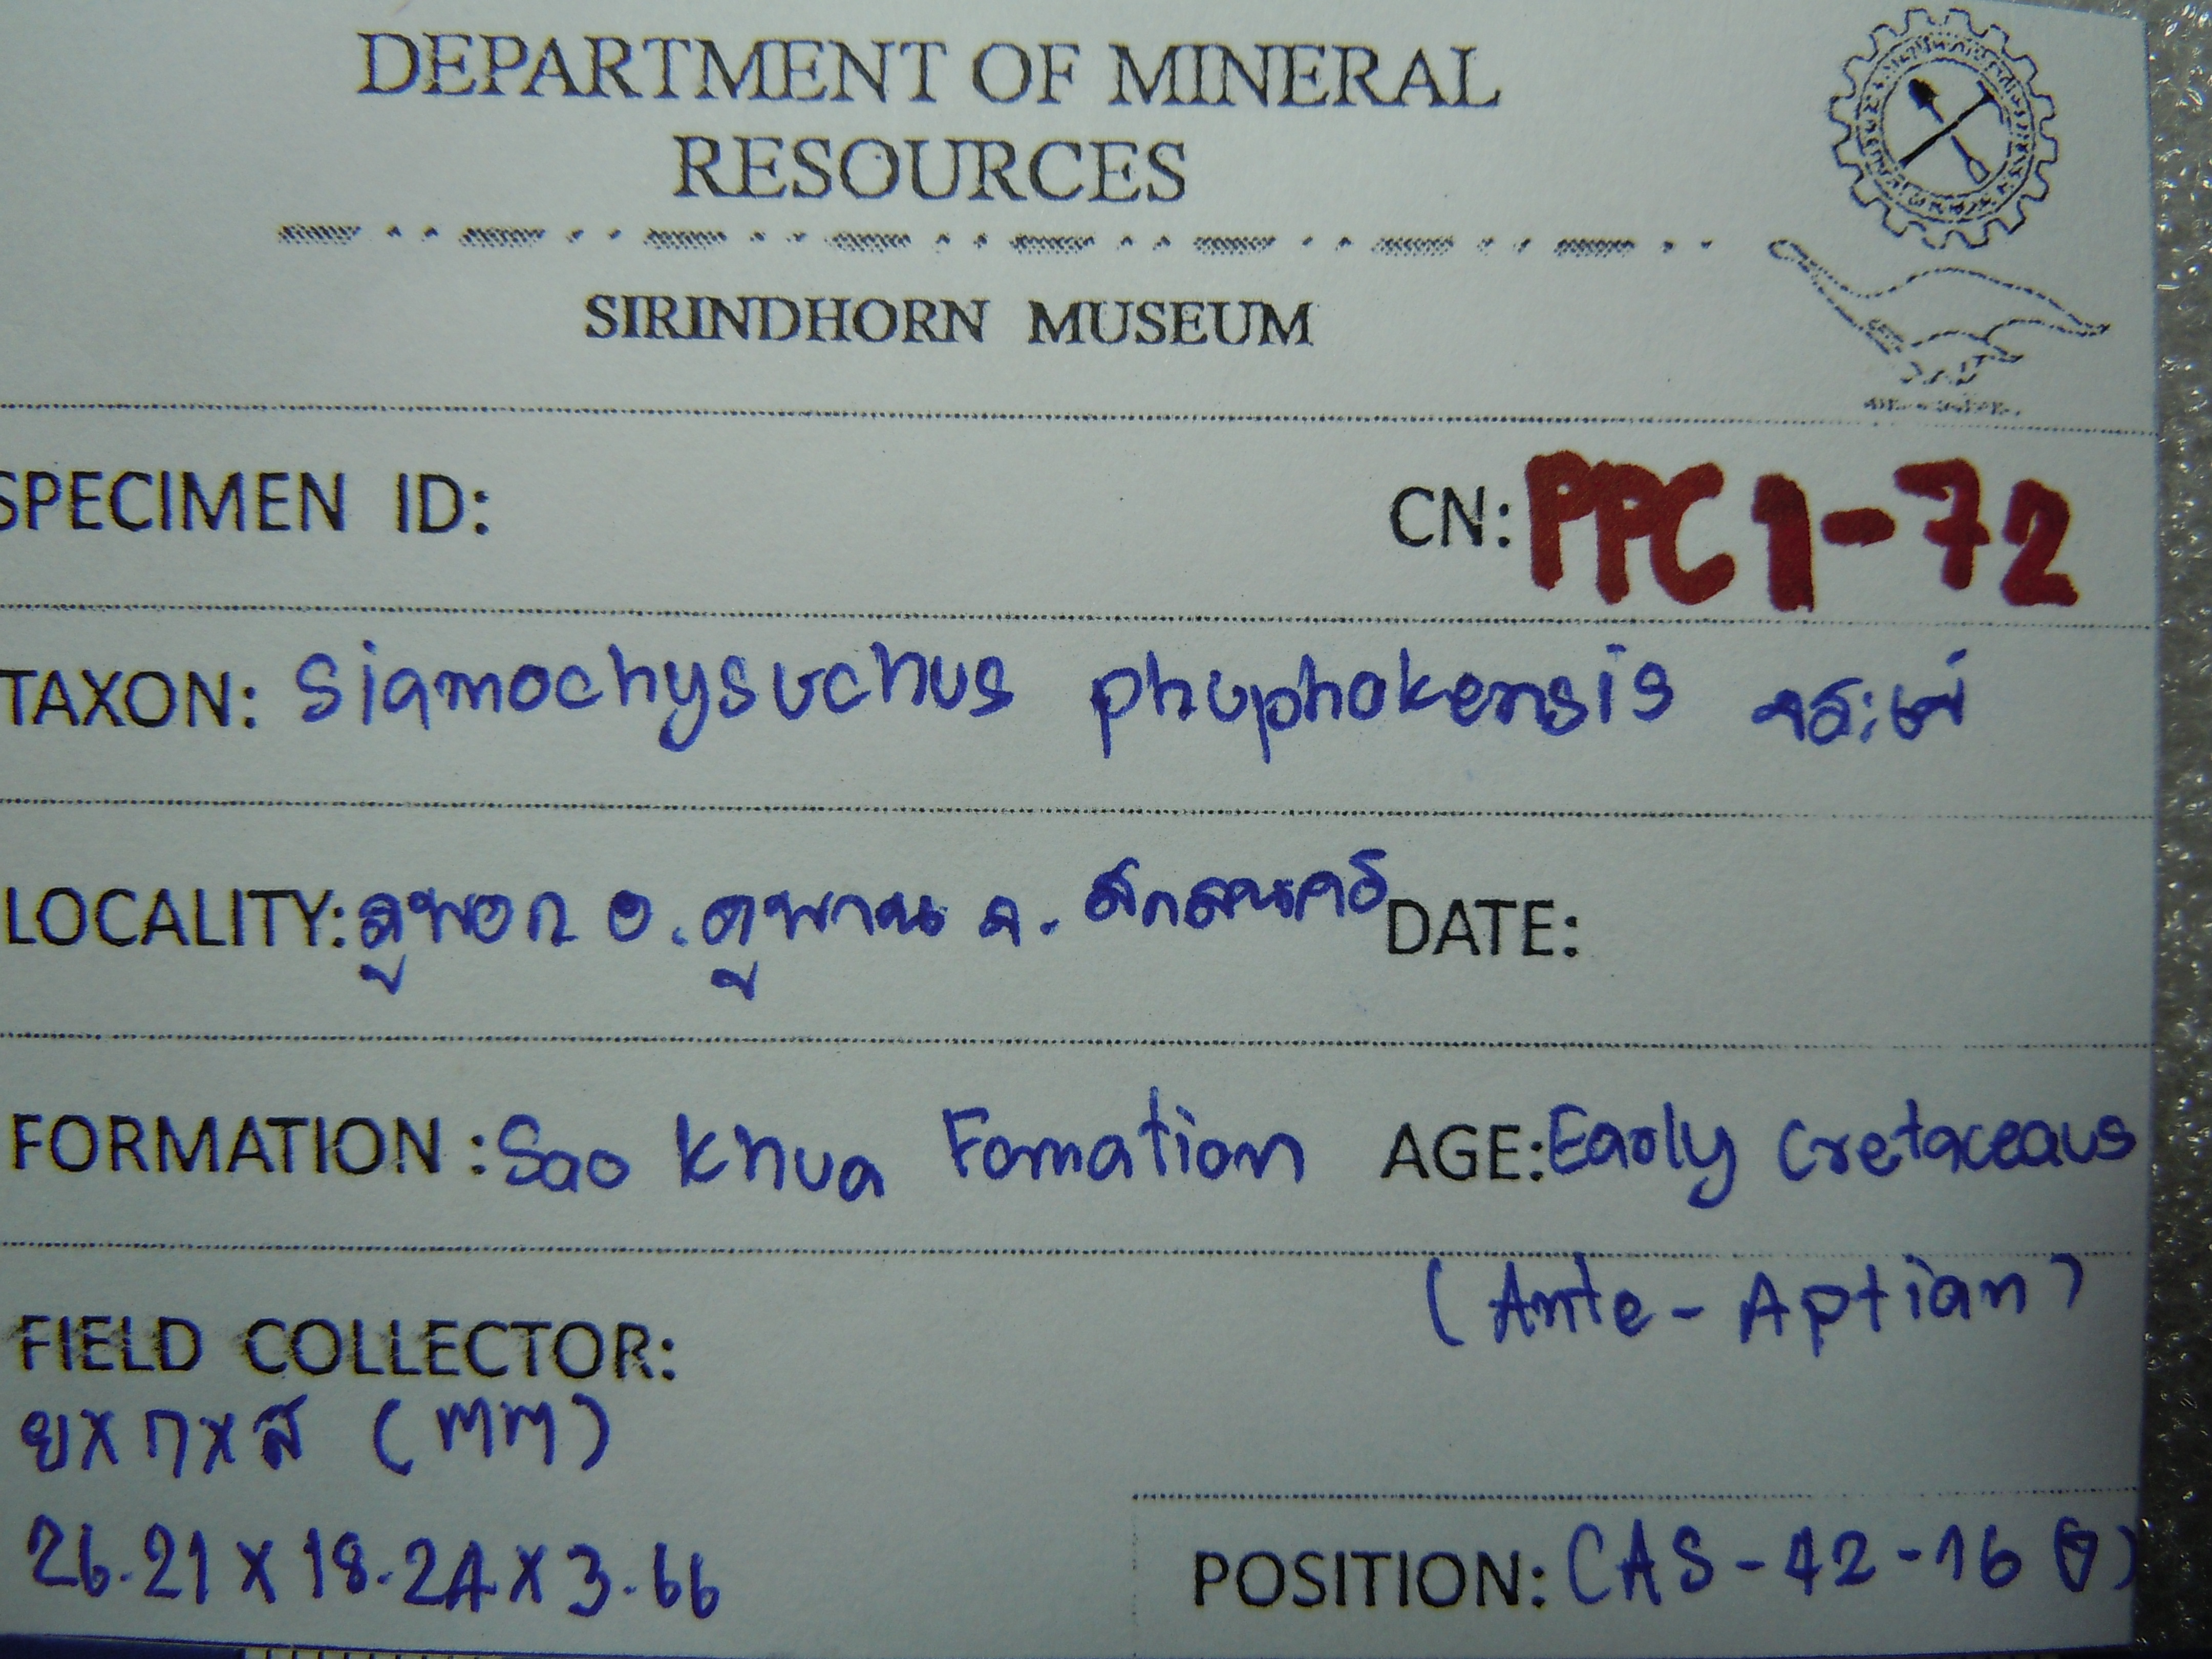 DEPARTMENT OF MINERAL
RESOURCES
SIRINDHORN MUSEUM
SPECIMEN ID: CN: PPC1-72
TAXON: Siamochysuchus phuphokensis จระเข้
LOCALITY: ภูพอก อ.ภูพาน จ. สกลนคร DATE:
FORMATION : Sao Khua Fomation AGE: Early Cretaceaus
(Ante-Aptian)
FIELD COLLECTOR:
ยxกxส (mm)
26.21 x 18.24 x 3.66
POSITION: CAS-42-16